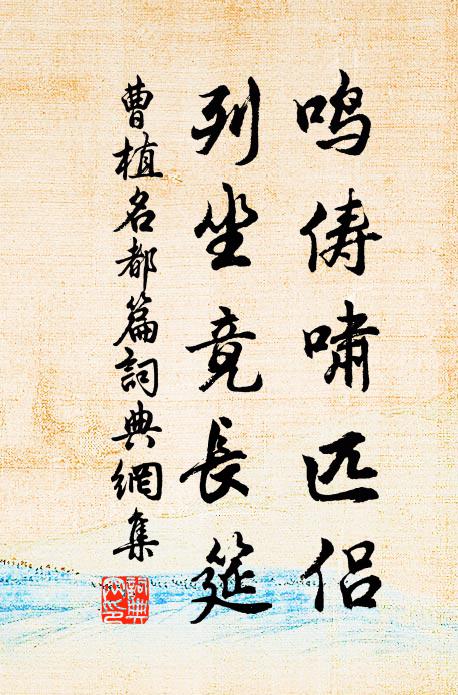 鸣俦啸匹侣
列坐竟長筵
曹植名都篇詞典網集